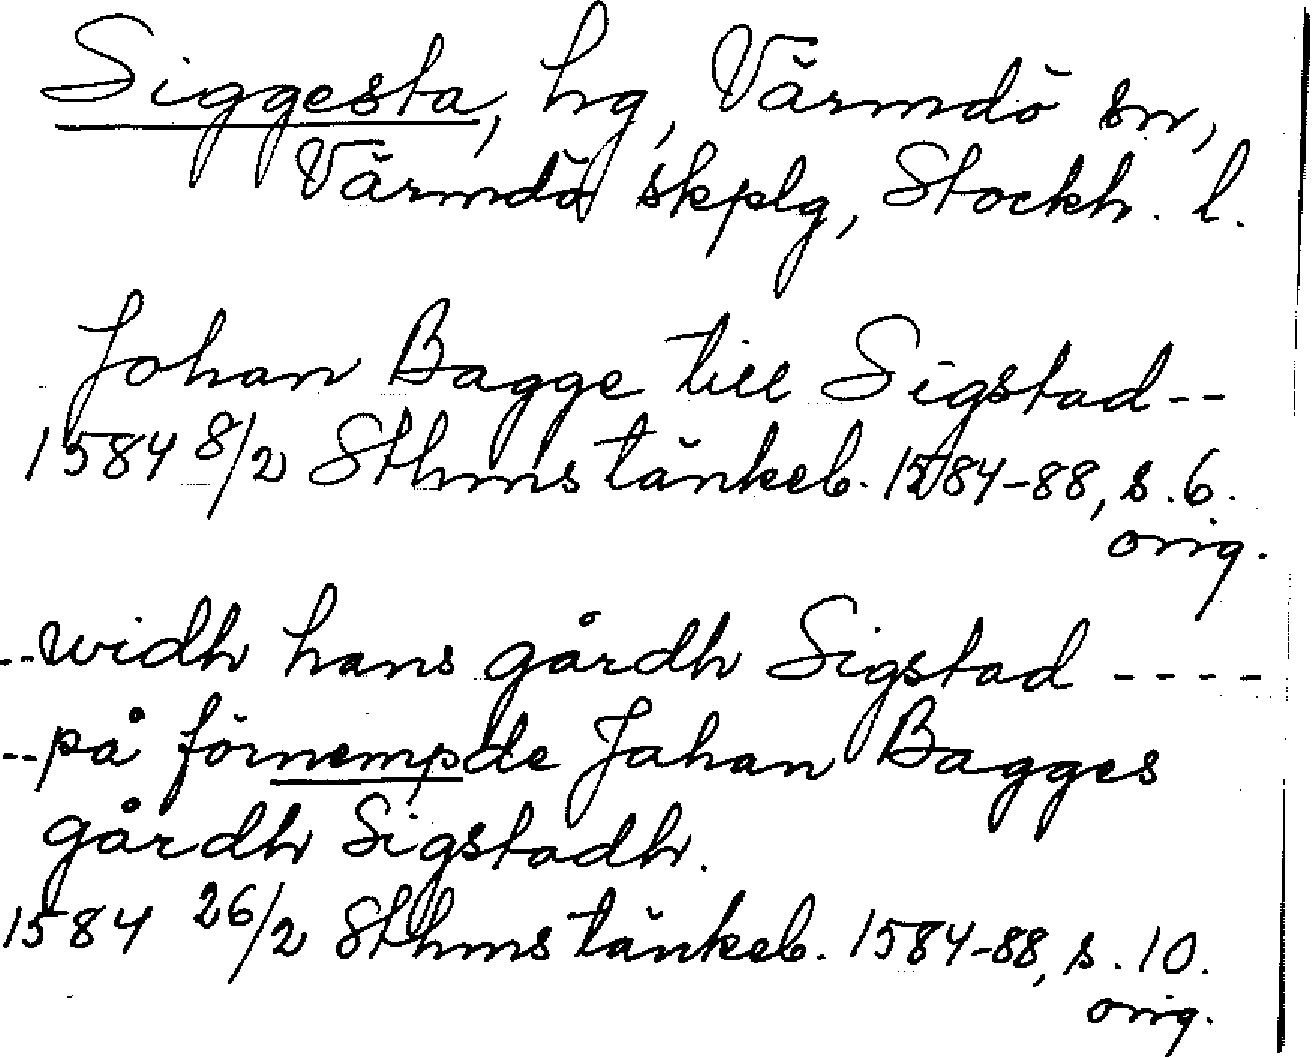 Siggesta, hg, Värmdö sn,
Värmdö skplg, Stockh. l.
Johan Bagge till Sigstad--
1584 8/2 Sthms tänkeb. 1584-88, s. 6.
orig.
--widh hans gårdh Sigstad ----
--på förnempde Jahan Bagges
gårdh Sigstadh.
1584 26/2 Sthms tänkeb. 1584-88, s. 10.
orig.